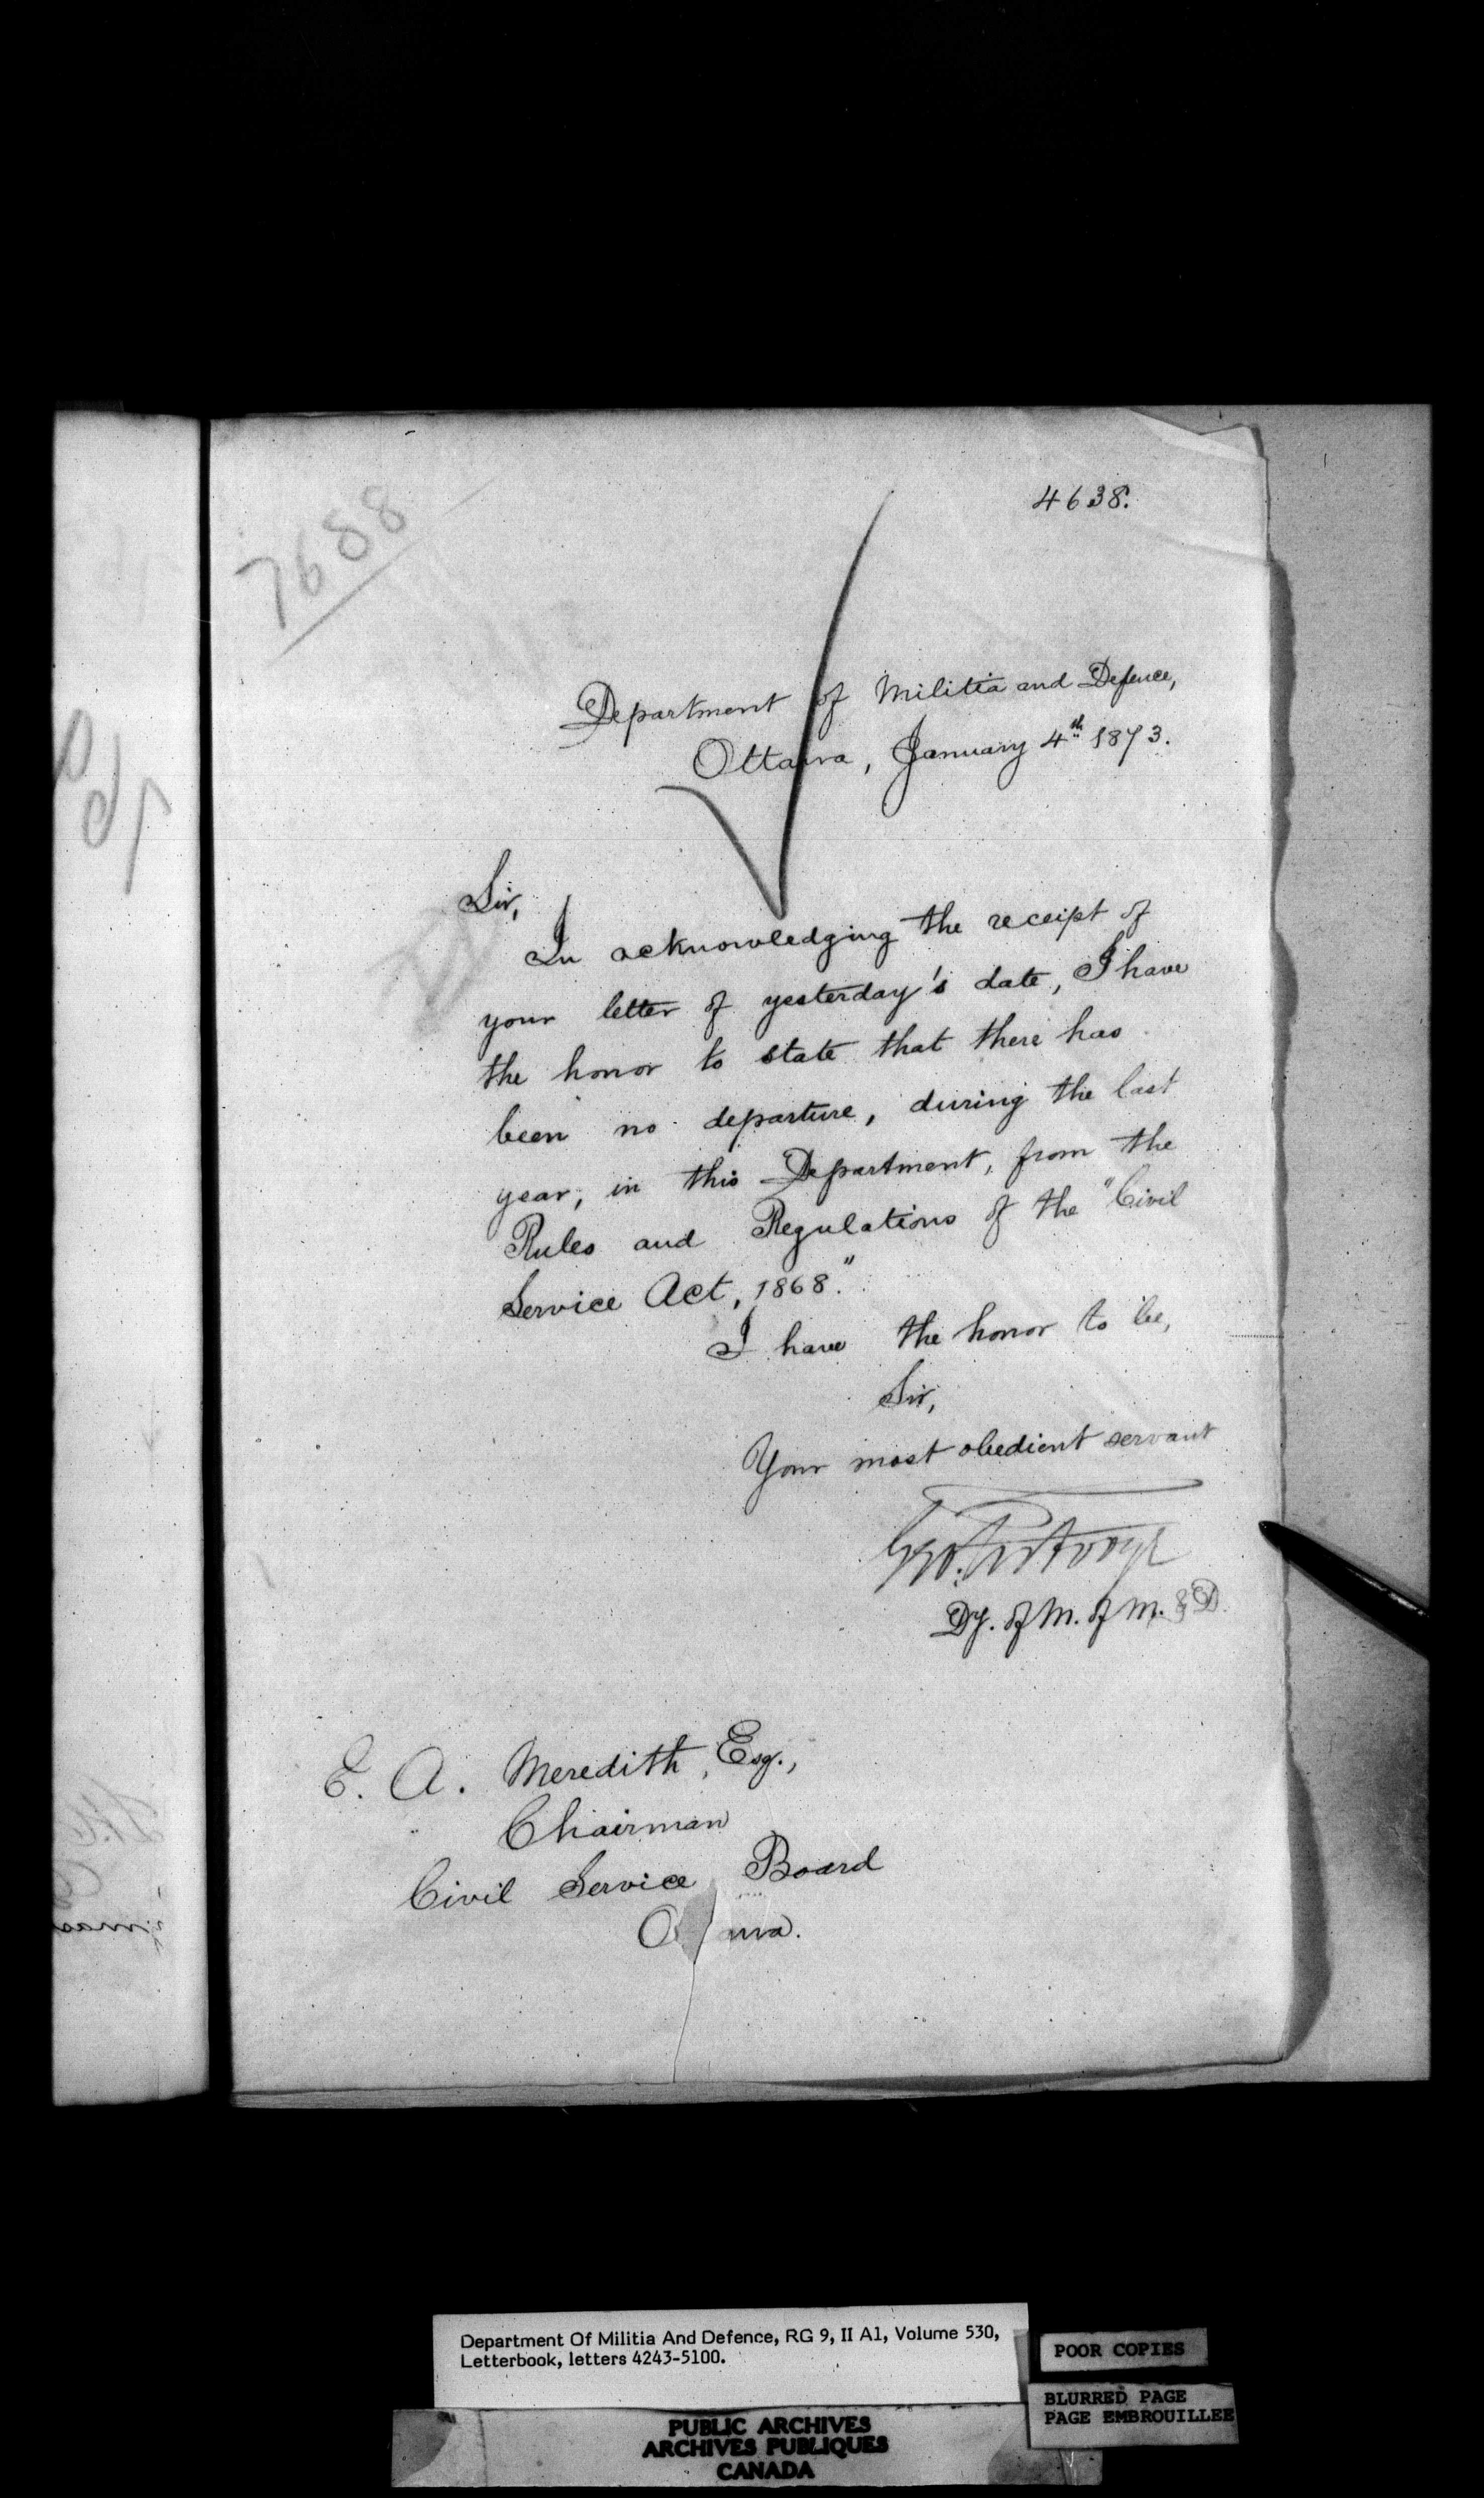 4638.
7688
Department of Militia and Defence,
Ottawa, January 4th 1873.
Sir,
In acknowledging the receipt of
your letter of yesterday's date, I have
the honor to state that there has
been no departure, during the last
year, in this Department, from the
Rules and Regulations of the "Civil
Service Act, 1868."
I have the honor to be,
Sir,
Your most obedient servant
Dy. of M. of M. & D.
E. A. Meredith, Esq.,
Chairman
Civil Service Board
O wa.
Department Of Militia And Defence, RG 9, II A1, Volume 530,
Letterbook, letters 4243-5100.
POOR COPIES
BLURRED PAGE
PAGE EMBROUILLEE
PUBLIC ARCHIVES
ARCHIVES PUBLIQUES
CANADA